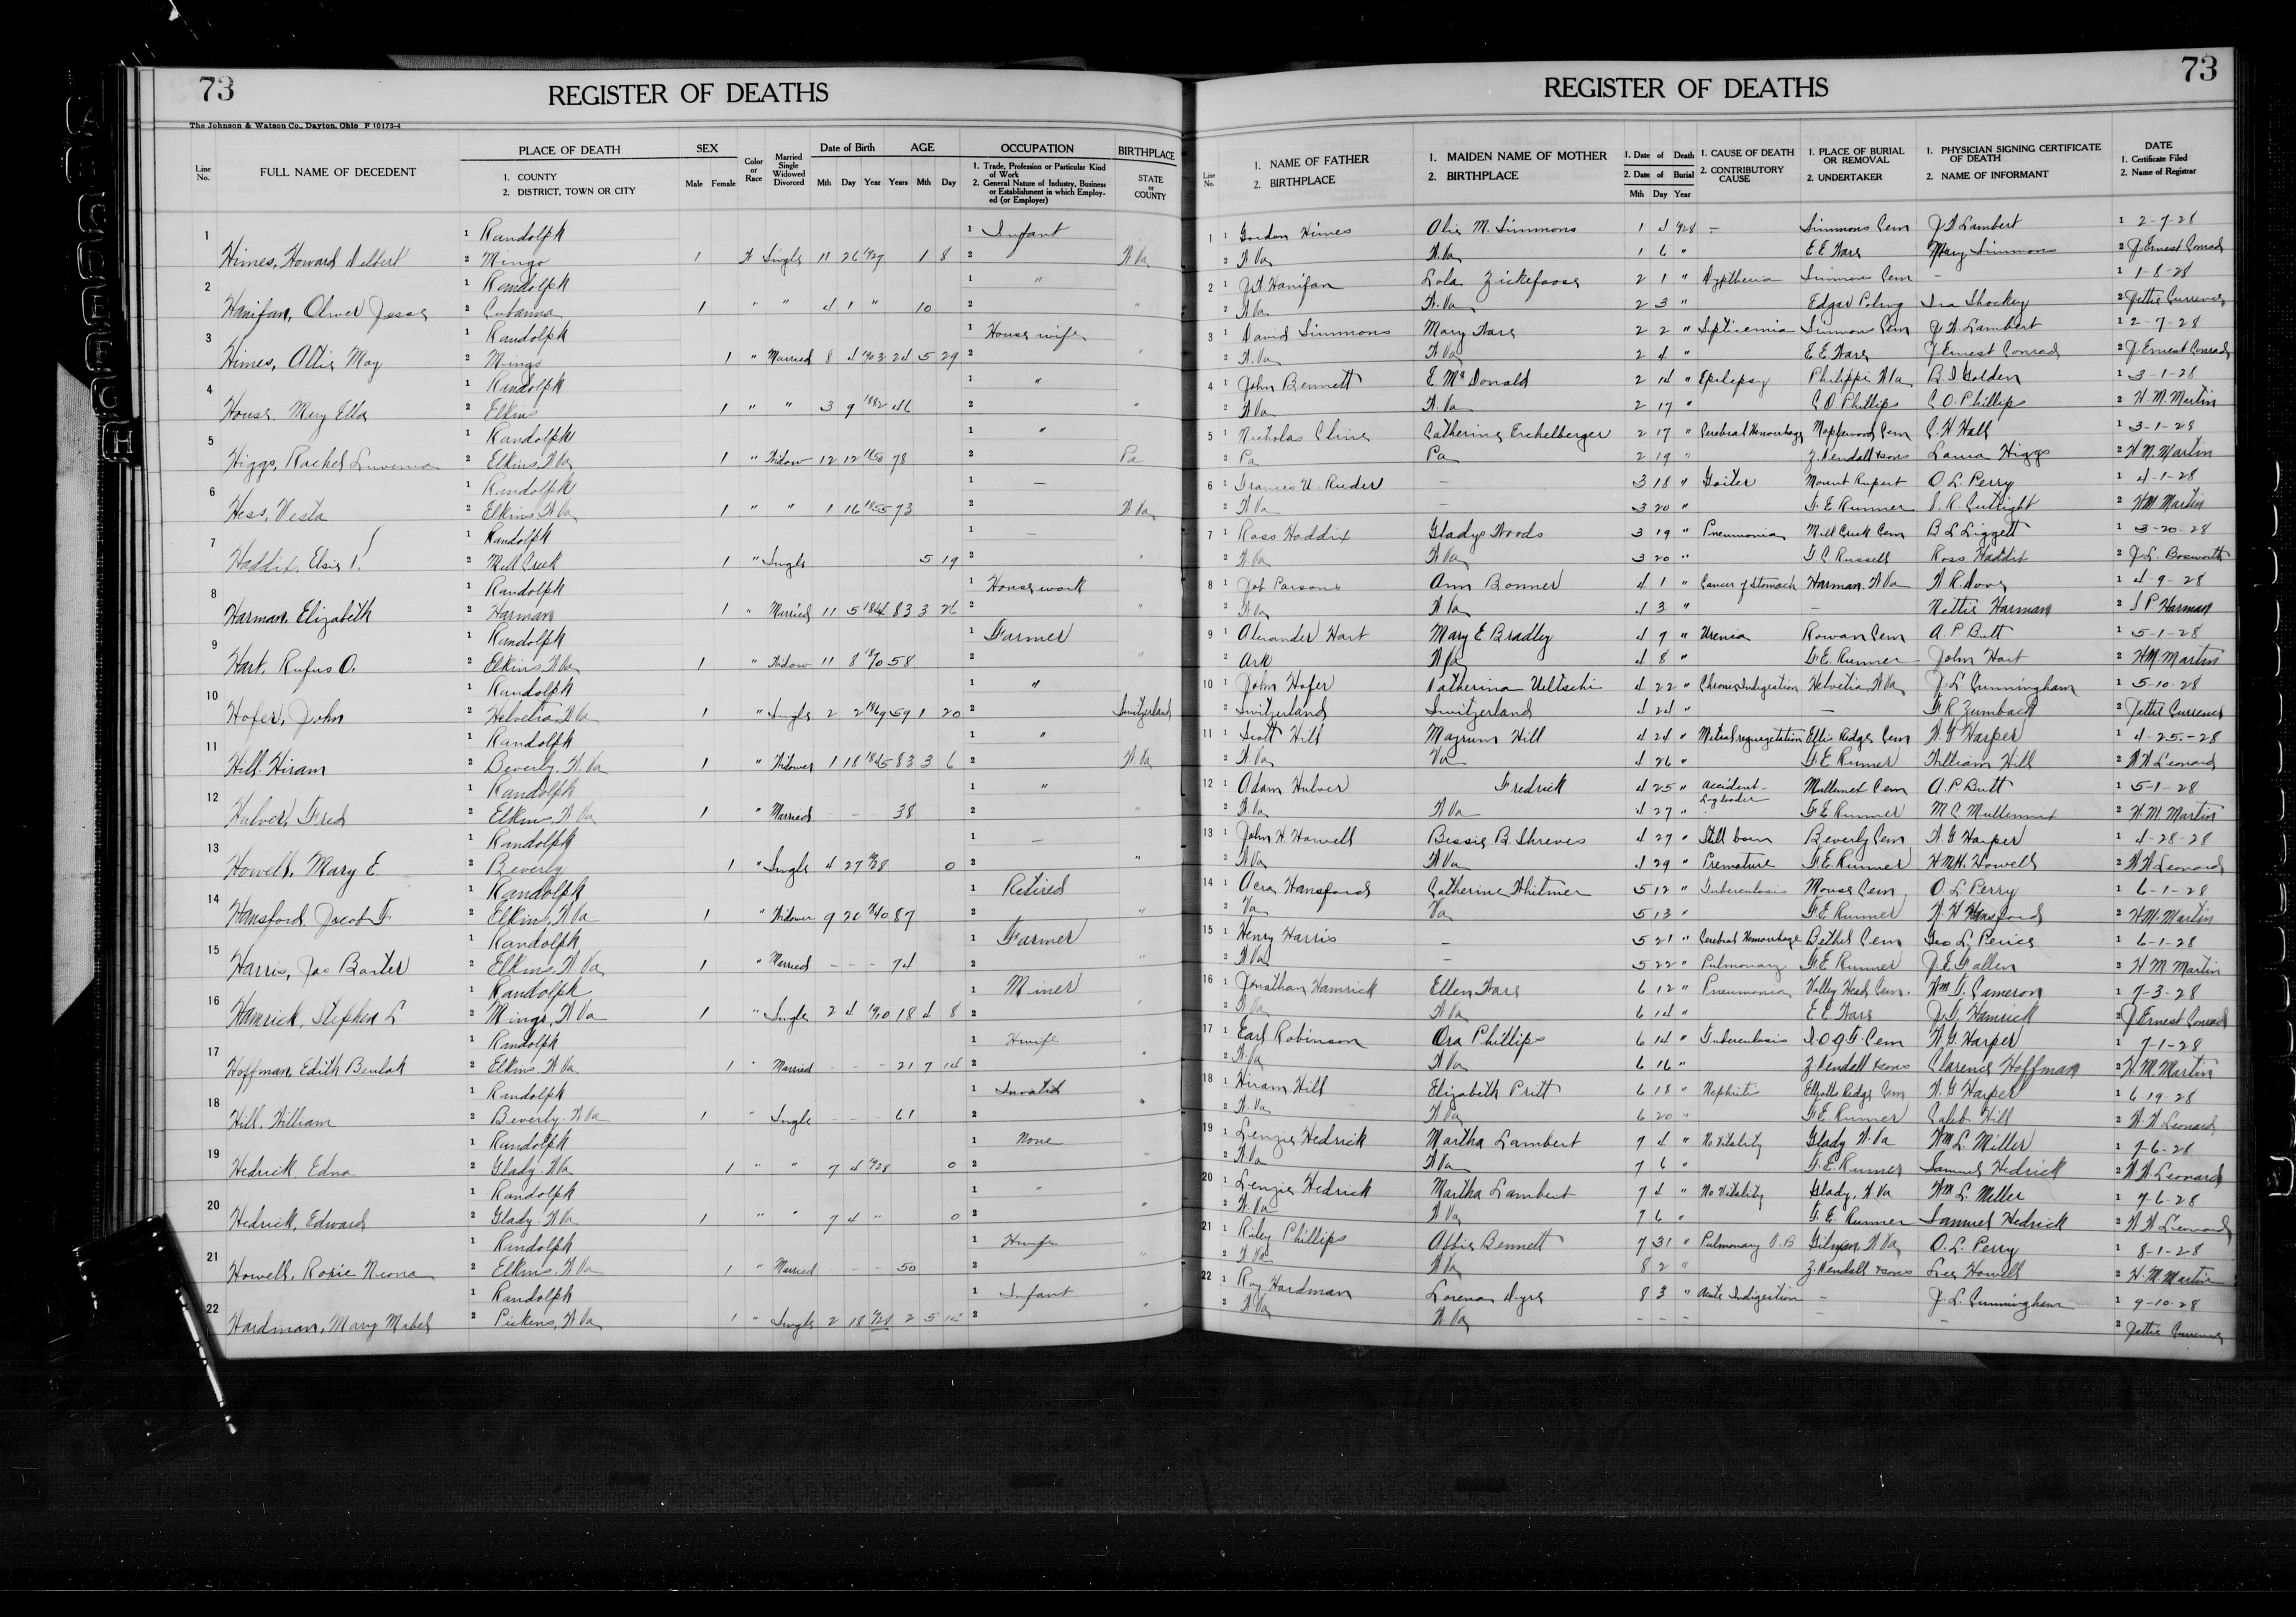 73
REGISTER OF DEATHS
The Johnson & Watson Co., Dayton, Ohio F 10173-4
Line No. FULL NAME OF DECEDENT PLACE OF DEATH 1. COUNTY 2. DISTRICT, TOWN OR CITY SEX Male Female Color or Race Married Single Widowed Divorced Date of Birth Mth Day Year AGE Years Mth Day OCCUPATION 1. Trade, Profession or Particular Kind of Work 2. General Nature of Industry, Business or Establishment in which Employed (or Employer) BIRTHPLACE STATE or COUNTY
1 1 Randolph 1 Infant
Himes, Howard Delbert 2 Mingo 1 W Single 11 26 1927 1 8 2 W Va
2 1 Randolph 1 "
Hanifan, Oliver Jesse 2 1 " " 4 1 " 10 2 "
3 1 Randolph 1 Housewife
Himes, Altie May 2 Mingo 1 " Married 8 4 1903 24 5 29 2 "
4 1 Randolph 1 "
House, Mary Ella 2 Elkins 1 " " 3 9 1882 46 2 "
5 1 Randolph 1 "
Higgs, Rachel 2 Elkins, W Va 1 " Widow 12 12 1850 78 2 Pa
6 1 Randolph 1 —
Hess, Vesta 2 Elkins, W Va 1 " " 1 16 1855 73 2 W Va
7 1 Randolph 1 —
Haddix, Elsie I. 2 Mill Creek 1 " Single 5 19 2 "
8 1 Randolph 1 Housework
Harman, Elizabeth 2 Harman 1 " Married 11 5 1844 83 3 26 2 "
9 1 Randolph 1 Farmer
Hart, Rufus O. 2 Elkins, W Va 1 " Widow 11 8 1870 58 2 "
10 1 Randolph 1 "
Hofer, John 2 Helvetia, W Va 1 " Single 2 2 1869 59 1 20 2 Switzerland
11 1 Randolph 1 "
Hill, Hiram 2 Beverly, W Va 1 " Widower 1 18 1845 83 3 6 2 W. Va
12 1 Randolph 1 "
Hulver, Fred 2 Elkins, W Va 1 " Married - - - 38 2 "
13 1 Randolph 1 —
Howell, Mary E. 2 Beverly 1 " Single 4 27 1928 0 2 "
14 1 Randolph 1 Retired
Hansford, Jacob F. 2 Elkins, W Va 1 " Widower 9 20 1840 87 2 "
15 1 Randolph 1 Farmer
Harris, Jas Baxter 2 Elkins, W Va 1 " Married - - - 74 2 "
16 1 Randolph 1 Miner
Hamrick, Stephen L 2 Mingo, W Va 1 " Single 2 4 1910 18 4 8 2 "
17 1 Randolph 1 Hwife
Hoffman, Edith Beulah 2 Elkins, W Va 1 " Married - - - 21 7 14 2 "
18 1 Randolph 1 Invalid
Hill, William 2 Beverly, W Va 1 " Single - - - 61 2 "
19 1 Randolph 1 None
Hedrick, Edna 2 Glady, W Va 1 " " 7 4 1928 0 2 "
20 1 Randolph 1 "
Hedrick, Edward 2 Glady, W Va 1 " " 7 4 " 0 2 "
21 1 Randolph 1 Hwife
Howell, Roxie 2 Elkins, W Va 1 " Married - - - 50 2 "
22 1 Randolph 1 Infant
Hardman, Mary Mabel 2 Pickens, W Va 1 " Single 2 18 1928 2 5 2 "
73
REGISTER OF DEATHS
Line No. 1. NAME OF FATHER 2. BIRTHPLACE 1. MAIDEN NAME OF MOTHER 2. BIRTHPLACE 1. Date of Death 2. Date of Burial Mth Day Year 1. CAUSE OF DEATH 2. CONTRIBUTORY CAUSE 1. PLACE OF BURIAL OR REMOVAL 2. UNDERTAKER 1. PHYSICIAN SIGNING CERTIFICATE OF DEATH 2. NAME OF INFORMANT DATE 1. Certificate Filed 2. Name of Registrar
1 1 Gordon Himes M. Simmons 1 4 1928 — Simmons Cem J W Lambert 1 2-7-28
2 W Va W. Va 1 6 " E E Ware Mary Simmons 2 J Ernest Conrad
2 1 Hanifan Lola Zickefoose 2 1 " Simmons Cem - 1 1-8-28
2 W Va W. Va 2 3 " Edgar Poling Ira Shockey 2 Jettie Currence
3 1 David Simmons Mary Ware 2 2 " Septicemia Simmons Cem J W Lambert 1 2-7-28
2 W. Va W Va 2 4 " E E Ware J Ernest Conrad 2 J. Ernest Conrad
4 1 John Bennett E. McDonald 2 14 " Epilepsy Philippi W Va B I Golden 1 3-1-28
2 W Va W. Va 2 17 " C O Phillips C O. Phillips 2 H. M. Martin
5 1 Nicholas Cline Catherine Eichelberger 2 17 " Cerebral Hemorrhage Maplewood Cem C. H Hall 1 3-1-28
2 Pa Pa 2 19 " Z. Kendall & sons Laura Higgs 2 H M. Martin
6 1 Frances U. Ruder — 3 18 " Goiter Mount Rupert O. L. Perry 1 4-1-28
2 W Va — 3 20 " F. E. Runner S. R. Cutlight 2 H M Martin
7 1 Ross Haddix Gladys Woods 3 19 " Pneumonia Mill Creek Cem B L Liggett 1 3-20-28
2 W. Va W Va 3 20 " G C Russell Ross Haddix 2 J. L. Bosworth
8 1 Job Parsons Ann Bonner 4 1 " Cancer of Stomach Harman, W Va 1 4-9-28
2 W. Va W Va 4 3 " — Nettie Harman 2 S P Harman
9 1 Alexander Hart Mary E Bradley 4 7 " Uremia Rowan Cem A. P Butt 1 5-1-28
2 Ark W Va 4 8 " F. E. Runner John Hart 2 H M. Martin
10 1 John Hofer Katherina Ueltschi 4 22 " Chronic Indigestion Helvetia, W Va J. L Cunningham 1 5-10-28
2 Switzerland Switzerland 4 24 " — F R Zumbach 2 Jettie Currence
11 1 Scott Hill Hill 4 24 " Mitral regurgetation Cem W G Harper 1 4-25-28
2 W. Va Va 4 26 " F. E Runner William Hill 2 W W Leonard
12 1 Adam Hulver Fredrick 4 25 " Accident- Mullenex Cem A. P. Butt 1 5-1-28
2 W. Va W Va 4 27 " Logloader F. E Runner M C Mullennix 2 H M. Martin
13 1 John H Howell Bessie B. Shreves 4 27 " Still born Beverly Cem W. G Harper 1 4-28-28
2 W Va W Va 4 29 " Premature F. E. Runner Howell 2 W W. Leonard
14 1 Acra Hansford Catherine Whitmer 5 12 " Tuberculosis Mouse Cem O. L. Perry 1 6-1-28
2 Va Va 5 13 " F. E Runner W. W Hansford 2 H M. Martin
15 1 Henry Harris — 5 21 " Cerebral Hemorrhage Bethel Cem Geo L. 1 6-1-28
2 W Va — 5 22 " Pulmonary F. E Runner 2 H M. Martin
16 1 Jonathan Hamrick Ellen Ware 6 12 " Pneumonia Valley Head Cem. Wm T. Cameron 1 7-3-28
2 W. Va W Va 6 14 " E E Ware Hamrick 2 J Ernest Conrad
17 1 Earl Robinson Ora Phillips 6 14 " Tuberculosis I. O. O. F. Cem W. G. Harper 1 7-1-28
2 W. Va W Va 6 16 " Z. Kendall & sons Clarence Hoffman 2 H M. Martin
18 1 Hiram Hill Elizabeth Pritt 6 18 " Nephritis Ridge Cem W. G Harper 1 6 19 28
2 W. Va W Va 6 20 " F. E Runner Caleb Hill 2 W W Leonard
19 1 Lenzie Hedrick Martha Lambert 7 4 " No Vitality Glady W. Va Wm L. Miller 1 7-6-28
2 W. Va W Va 7 6 " F. E. Runner Samuel Hedrick 2 W W. Leonard
20 1 Lenzie Hedrick Martha Lambert 7 4 " No Vitality Glady, W Va Wm L. Miller 1 7-6-28
2 W. Va W Va 7 6 " F. E. Runner Samuel Hedrick 2 W W Leonard
21 1 Riley Phillips Abbie Bennett 7 31 " Pulmonary T. B Gilman, W Va O. L. Perry 1 8-1-28
2 W Va W Va 8 2 " Z. Kendall & sons Lee Howell 2 H. M Martin
22 1 Roy Hardman Lorena 8 3 " Acute Indigestion - J. L. Cunningham 1 9-10-28
2 W. Va W Va - - - - - 2 Jettie Currence
H